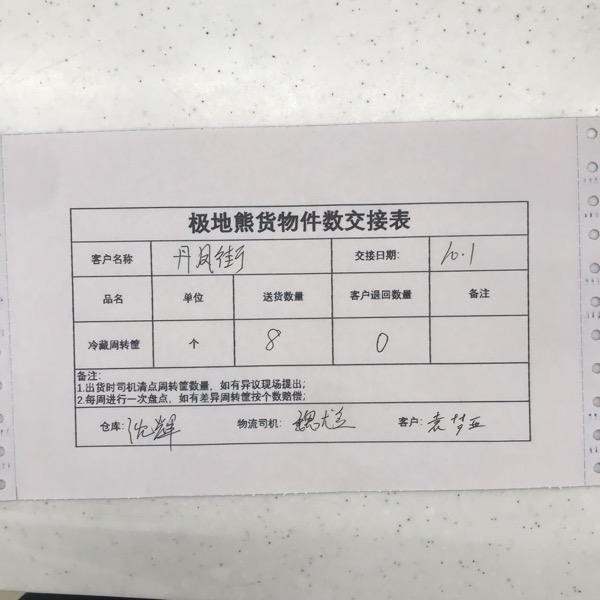 极地熊货物件数交接表
客户名称 丹凤街 交接日期: 10.1
品名 单位 送货数量 客户退回数量 备注
冷藏周转筐 个 8 0
备注:
1.出货时司机清点周转筐数量，如有异议现场提出;
2.每周进行一次盘点，如有差异周转筐按个数赔偿;
仓库: 沈辉 物流司机: 客户: 袁梦亚